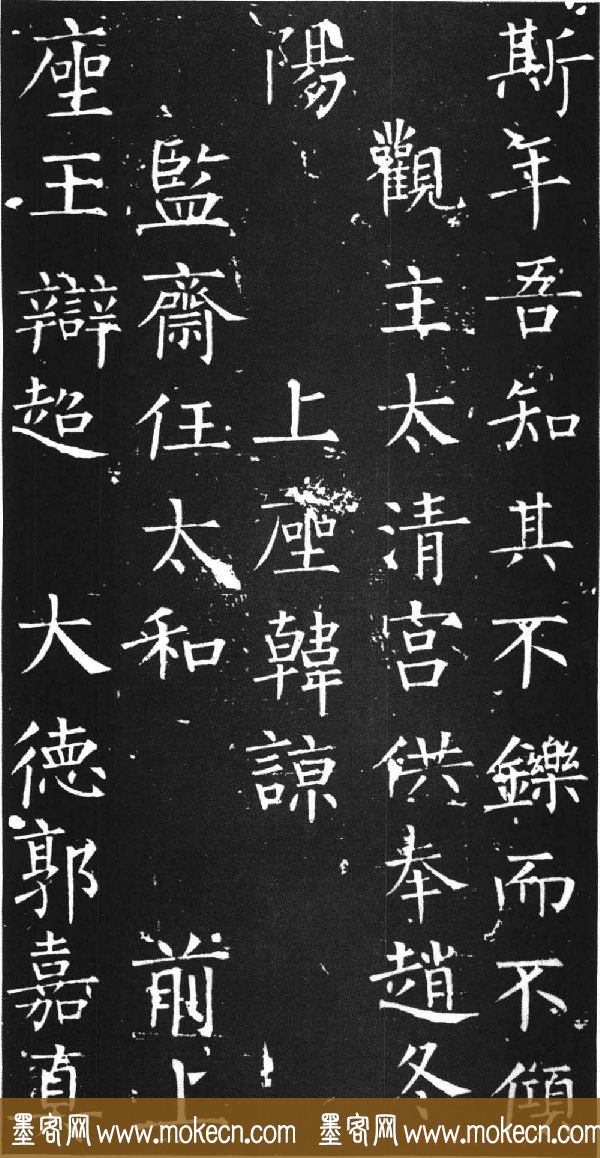 斯年吾知其不鑠而不傾
觀主太清宮供奉趙冬
陽 上座韓諒
監齋任太和 前上
座王辯超 大德郭嘉真
墨客网 www.mokecn.com 墨客网 www.mokecn.com